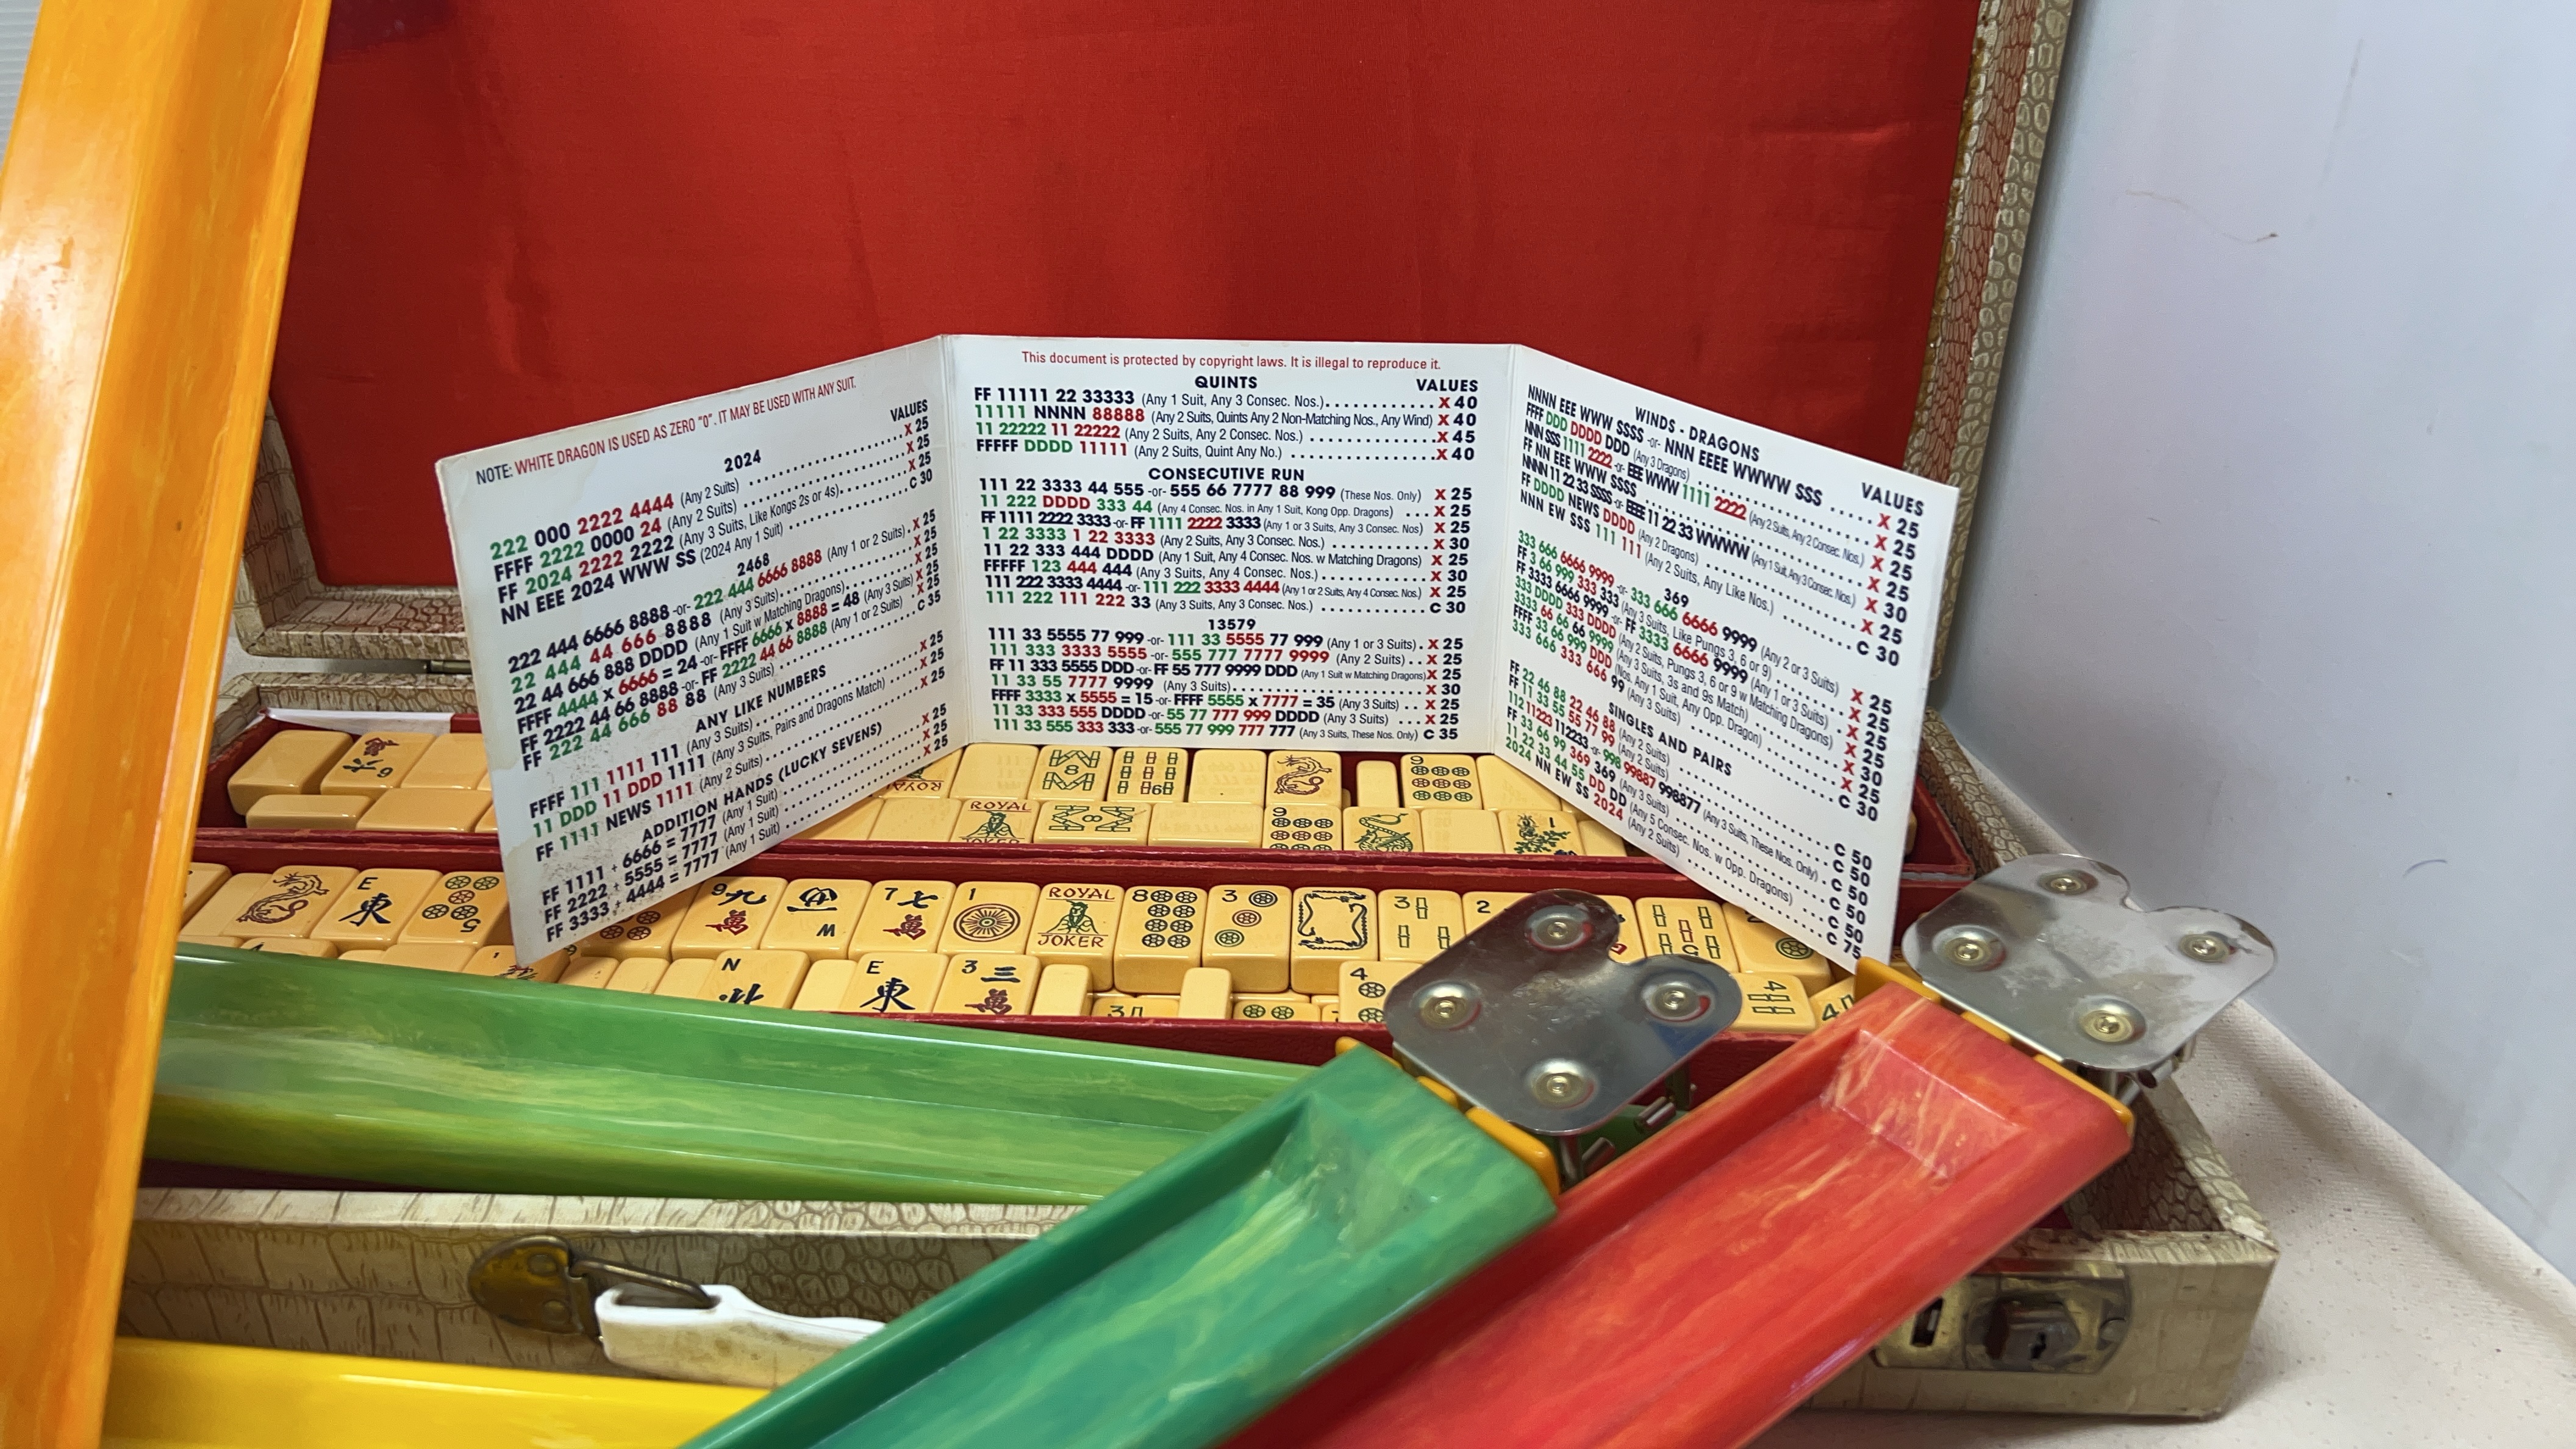 NOTE: WHITE DRAGON IS USED AS ZERO "0". IT MAY BE USED WITH ANY SUIT.
VALUES
2024
222 000 2222 4444 (Any 2 Suits) X 25
FFFF 2222 0000 24 (Any 2 Suits) X 25
FF 2024 2222 2222 (Any 3 Suits, Like Kongs 2s or 4s) X 25
NN EEE 2024 WWW SS (2024 Any 1 Suit) C 30
2468
222 444 6666 8888 -or- 222 444 6666 8888 (Any 1 or 2 Suits) X 25
22 444 44 666 8888 (Any 3 Suits) X 25
22 44 666 888 DDDD (Any 1 Suit w Matching Dragons) X 25
FFFF 4444 x 6666 = 24 -or- FFFF 6666 x 8888 = 48 (Any 3 Suits) X 25
FF 2222 44 66 8888 -or- FF 2222 44 66 8888 (Any 1 or 2 Suits) X 25
FF 222 44 666 88 88 (Any 3 Suits) C 35
ANY LIKE NUMBERS
FFFF 111 1111 111 (Any 3 Suits) X 25
11 DDD 11 DDD 1111 (Any 3 Suits, Pairs and Dragons Match) X 25
FF 1111 NEWS 1111 (Any 2 Suits) X 25
ADDITION HANDS (LUCKY SEVENS)
FF 1111 + 6666 = 7777 (Any 1 Suit) X 25
FF 2222 + 5555 = 7777 (Any 1 Suit) X 25
FF 3333 + 4444 = 7777 (Any 1 Suit) X 25
This document is protected by copyright laws. It is illegal to reproduce it.
QUINTS VALUES
FF 11111 22 33333 (Any 1 Suit, Any 3 Consec. Nos.) X 40
11111 NNNN 88888 (Any 2 Suits, Quints Any 2 Non-Matching Nos., Any Wind) X 40
11 22222 11 22222 (Any 2 Suits, Any 2 Consec. Nos.) X 45
FFFFF DDDD 11111 (Any 2 Suits, Quint Any No.) X 40
CONSECUTIVE RUN
111 22 3333 44 555 -or- 555 66 7777 88 999 (These Nos. Only) X 25
11 222 DDDD 333 44 (Any 4 Consec. Nos. in Any 1 Suit, Kong Opp. Dragons) X 25
FF 1111 2222 3333 -or- FF 1111 2222 3333 (Any 1 or 3 Suits, Any 3 Consec. Nos) X 25
1 22 3333 1 22 3333 (Any 2 Suits, Any 3 Consec. Nos.) X 30
11 22 333 444 DDDD (Any 1 Suit, Any 4 Consec. Nos. w Matching Dragons) X 25
FFFFF 123 444 444 (Any 3 Suits, Any 4 Consec. Nos.) X 30
111 222 3333 4444 -or- 111 222 3333 4444 (Any 1 or 2 Suits, Any 4 Consec. Nos.) X 25
111 222 111 222 33 (Any 3 Suits, Any 3 Consec. Nos.) C 30
13579
111 33 5555 77 999 -or- 111 33 5555 77 999 (Any 1 or 3 Suits) X 25
111 333 3333 5555 -or- 555 777 7777 9999 (Any 2 Suits) X 25
FF 11 333 5555 DDD -or- FF 55 777 9999 DDD (Any 1 Suit w Matching Dragons) X 25
11 33 55 7777 9999 (Any 3 Suits) X 30
FFFF 3333 x 5555 = 15 -or- FFFF 5555 x 7777 = 35 (Any 3 Suits) X 25
11 33 333 555 DDDD -or- 55 77 777 999 DDDD (Any 3 Suits) X 25
111 33 555 333 333 -or- 555 77 999 777 777 (Any 3 Suits, These Nos. Only) C 35
WINDS - DRAGONS VALUES
NNNN EEE WWW SSSS -or- NNN EEEE WWWW SSS X 25
FFFF DDD DDDD DDD (Any 3 Dragons) X 25
NNN SSS 1111 2222 -or- EEE WWW 1111 2222 (Any 2 Suits, Any 2 Consec. Nos.) X 25
FF NN EEE WWW SSSS X 25
NNNN 11 22 33 SSSS -or- EEEE 11 22 33 WWWW (Any 1 Suit, Any 3 Consec. Nos.) X 30
FF DDDD NEWS DDDD (Any 2 Dragons) X 25
NNN EW SSS 111 111 (Any 2 Suits, Any Like Nos.) C 30
369
333 666 6666 9999 -or- 333 666 6666 9999 (Any 2 or 3 Suits) X 25
FF 3 66 999 333 333 (Any 3 Suits, Like Pungs 3, 6 or 9) X 25
FF 3333 6666 9999 -or- FF 3333 6666 9999 (Any 1 or 3 Suits) X 25
333 DDDD 333 DDDD (Any 2 Suits, Pungs 3, 6 or 9 w Matching Dragons) X 25
3333 66 66 66 9999 (Any 3 Suits, 3s and 9s Match) X 30
FFFF 33 66 999 DDD (Nos. Any 1 Suit, Any Opp. Dragon) X 25
333 666 333 666 99 (Any 3 Suits) C 30
SINGLES AND PAIRS
FF 22 46 88 22 46 88 (Any 2 Suits) C 50
FF 11 33 55 55 77 99 (Any 2 Suits) C 50
112 11223 112233 -or- 998 99887 998877 (Any 3 Suits, These Nos. Only) C 50
FF 33 66 99 369 369 (Any 3 Suits) C 50
11 22 33 44 55 DD DD (Any 5 Consec. Nos. w Opp. Dragons) C 50
2024 NN EW SS 2024 (Any 2 Suits) C 75
ROYAL
8
9
ROYAL
JOKER
8
9
1
E
東
5
9
九
萬
W
7
七
萬
1
ROYAL
JOKER
8
3
3
2
N
北
E
東
3
三
萬
3
4
4
4